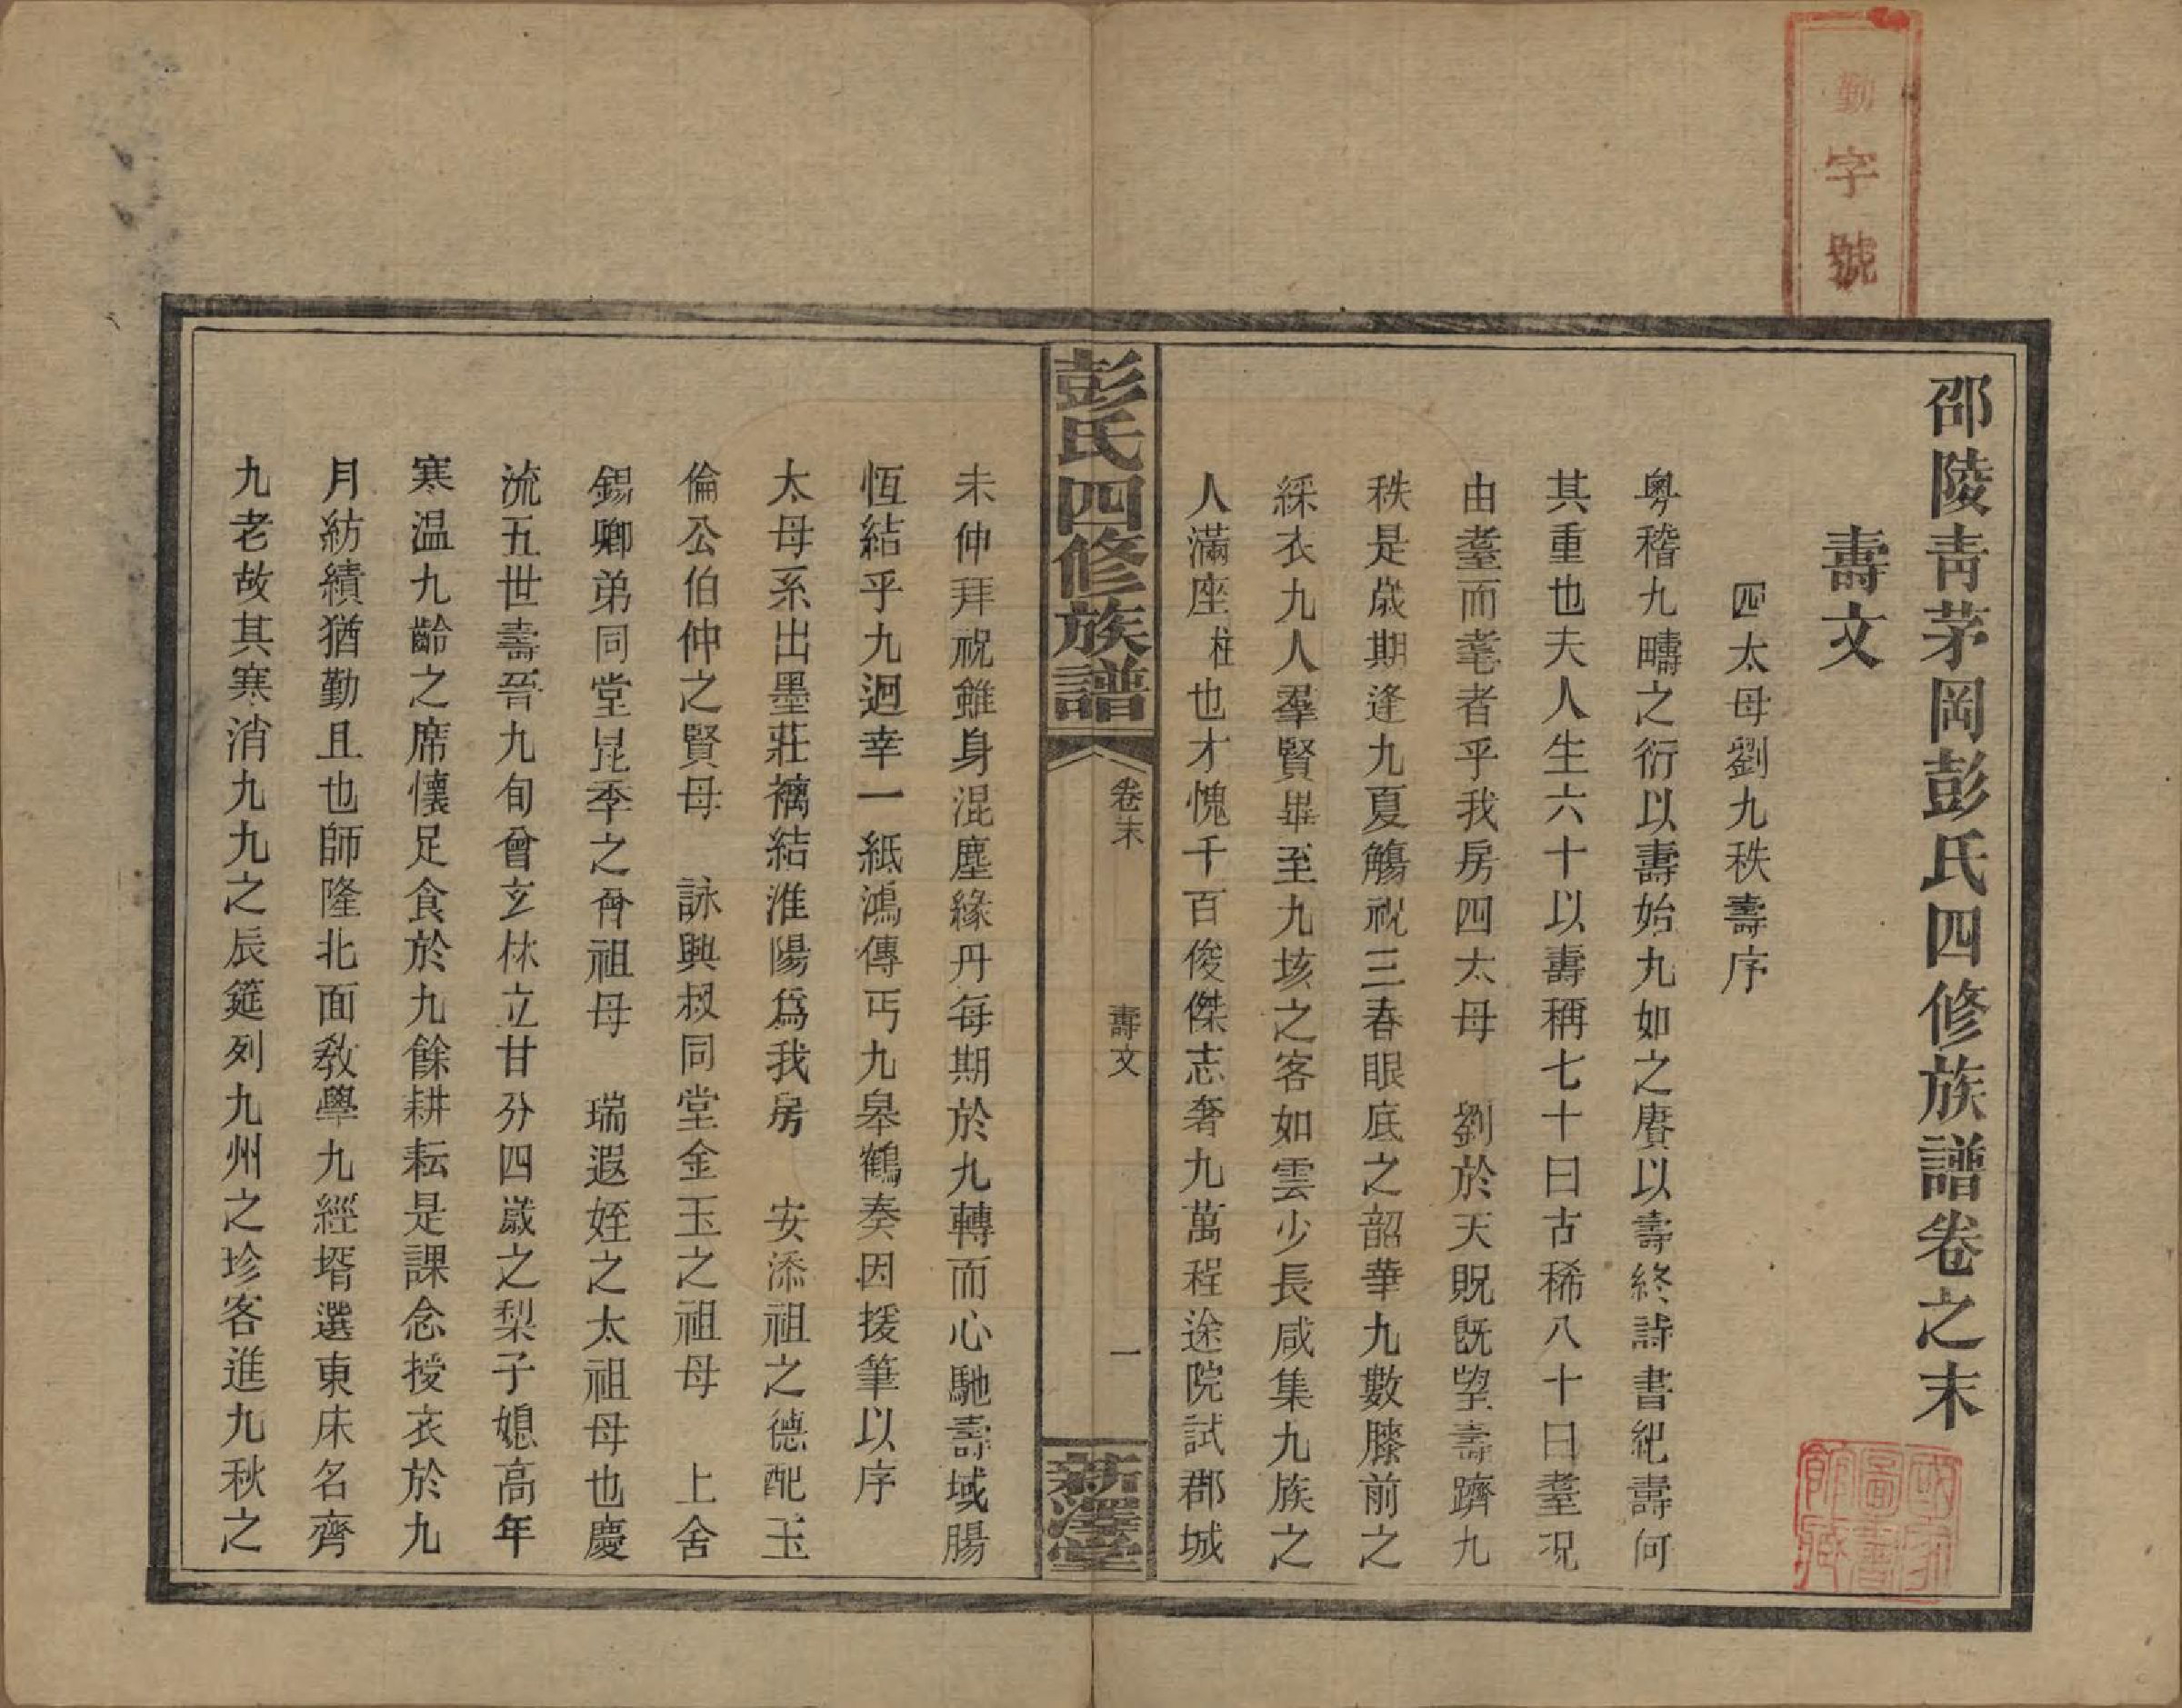 勤字號
邵陵青茅岡彭氏四修族譜卷之末
壽文
四太母劉九秩壽序
粵稽九疇之衍以壽始九如之賡以壽終詩書紀壽何
其重也夫人生六十以壽稱七十曰古稀八十曰耋况
由耋而耄者乎我房四太母　劉於天貺旣望壽躋九
秩是歲期逢九夏觴祝三春眼底之韶華九數膝前之
綵衣九人羣賢畢至九垓之客如雲少長咸集九族之
人滿座柱也才愧千百俊傑志奢九萬程途院試郡城
彭氏四修族譜
卷末
壽文
一
新澤堂
未仲拜祝雖身混塵緣丹每期於九轉而心馳壽域腸
恆結乎九迴幸一紙鴻傳丐九皋鶴奏因援筆以序
太母系出墨莊褵結淮陽爲我房　安添祖之德配玉
倫公伯仲之賢母　詠興叔同堂金玉之祖母　上舍
錫卿弟同堂昆季之曾祖母　瑞遐姪之太祖母也慶
流五世壽晉九旬曾玄林立甘分四歲之梨子媳高年
寒温九齡之席懷足食於九餘耕耘是課念授衣於九
月紡績猶勤且也師隆北面教學九經壻選東床名齊
九老故其寒消九九之辰筵列九州之珍客進九秋之
國家圖書館藏